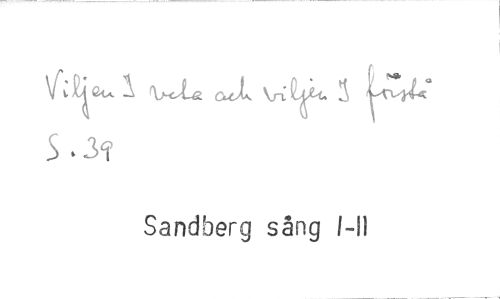 Viljen I veta och viljen I förstå
S. 39
Sandberg sång I-II